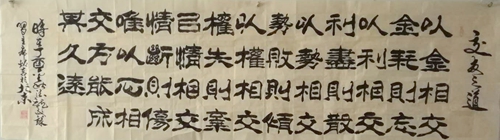 交友之道
以金相交
金耗則忘
以利相交
利盡則散
以勢相交
勢敗則傾
以權相交
權失則棄
以情相交
情斷則傷
唯以心相
交方能成
其久遠